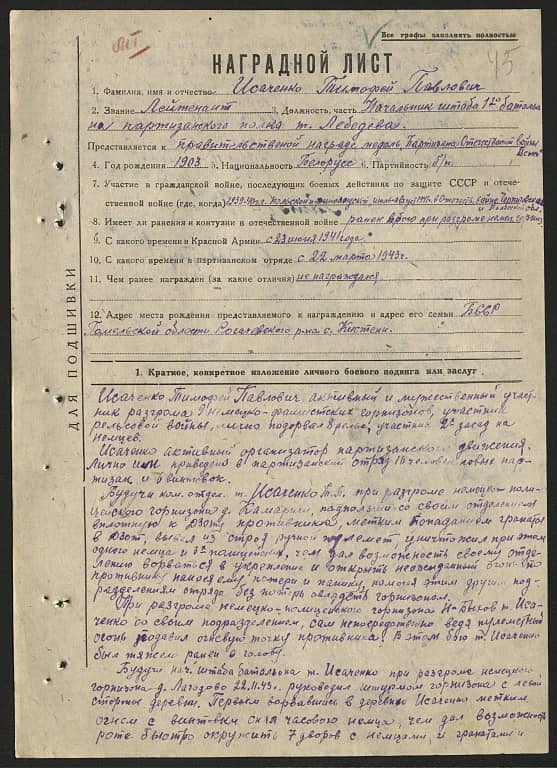 Все графы заполнять полностью
45
НАГРАДНОЙ ЛИСТ
1. Фамилия, имя и отчество Исаченко Тимофей Павлович
2. Звание Лейтенант 3. Должность, часть Начальник штаба 12го батальо-
на партизанского полка т. Лебедева.
Представляется к правительственой награде, медаль, Партизана Отечествен войны
4. Год рождения 1903 5. Национальность Белорусс 6. Партийность б/п.
7. Участие в гражданской войне, последующих боевых действиях по защите СССР и отече-
ственной войне (где, когда)
8. Имеет ли ранения и контузии в отечественной войне ранен в бою при разгроме
9. С какого времени в Красной Армии с 23 июня 1941 года
10. С какого времени в партизанском отряде с 22 марта 1943г.
11. Чем ранее награжден (за какие отличия) не награждался
12. Адрес места рождения представляемого к награждению и адрес его семьи БССР
Гомельской области Рогачевского р-на с. Кистени.
ДЛЯ ПОДШИВКИ
1. Краткое, конкретное изложение личного боевого подвига или заслуг
Исаченко Тимофей Павлович активный и мужественный участ-
ник разгрома 9 немецко-фашистских горнизонов, участник
рельсовой войны, лично подорвал 8 рельс, участник 2х засад на
немцев.
Исаченко активный организатор партизанского движения.
Лично им приведено в партизанский отряд 11 человек новых пар-
тизан и 6 винтовок.
Будучи ком. отдел. т. Исаченко Т.П. при разгроме немецко-поли-
цейского горнизона д. Комаричи, подползши со своим отделением
вплотную к Дзоту противника, метким попаданием гранатой
в Дзот, вывел из строя ручной пулемет, уничтожил при этом
одного немца и 3х полицейских, чем дал возможность своему отде-
лению ворваться в укрепление и открыть неожиданный огонь по
противнику нанося ему потери и панику, помогая этим другим под-
разделениям отряда без потерь овладеть горнизоном.
При разгроме немецко-полицейского горнизона Н-Быхов т. Иса-
ченко со своим подразделением, сам непосредственно ведя пулеметный
огонь подавил огневую точку противника. В этом бою т. Исаченко
был тяжело ранен в голову.
Будучи нач. штаба батальона т. Исаченко при разгроме немецкого
горнизона д. 22.11.43г. руководил штурмом горнизона с левой
стороны деревни. Первым ворвавшись в деревню Исаченко метким
огнем с винтовки снял часового немца, чем дал возможность
роте быстро окружить 7 дворов с немцами, и гранатами и